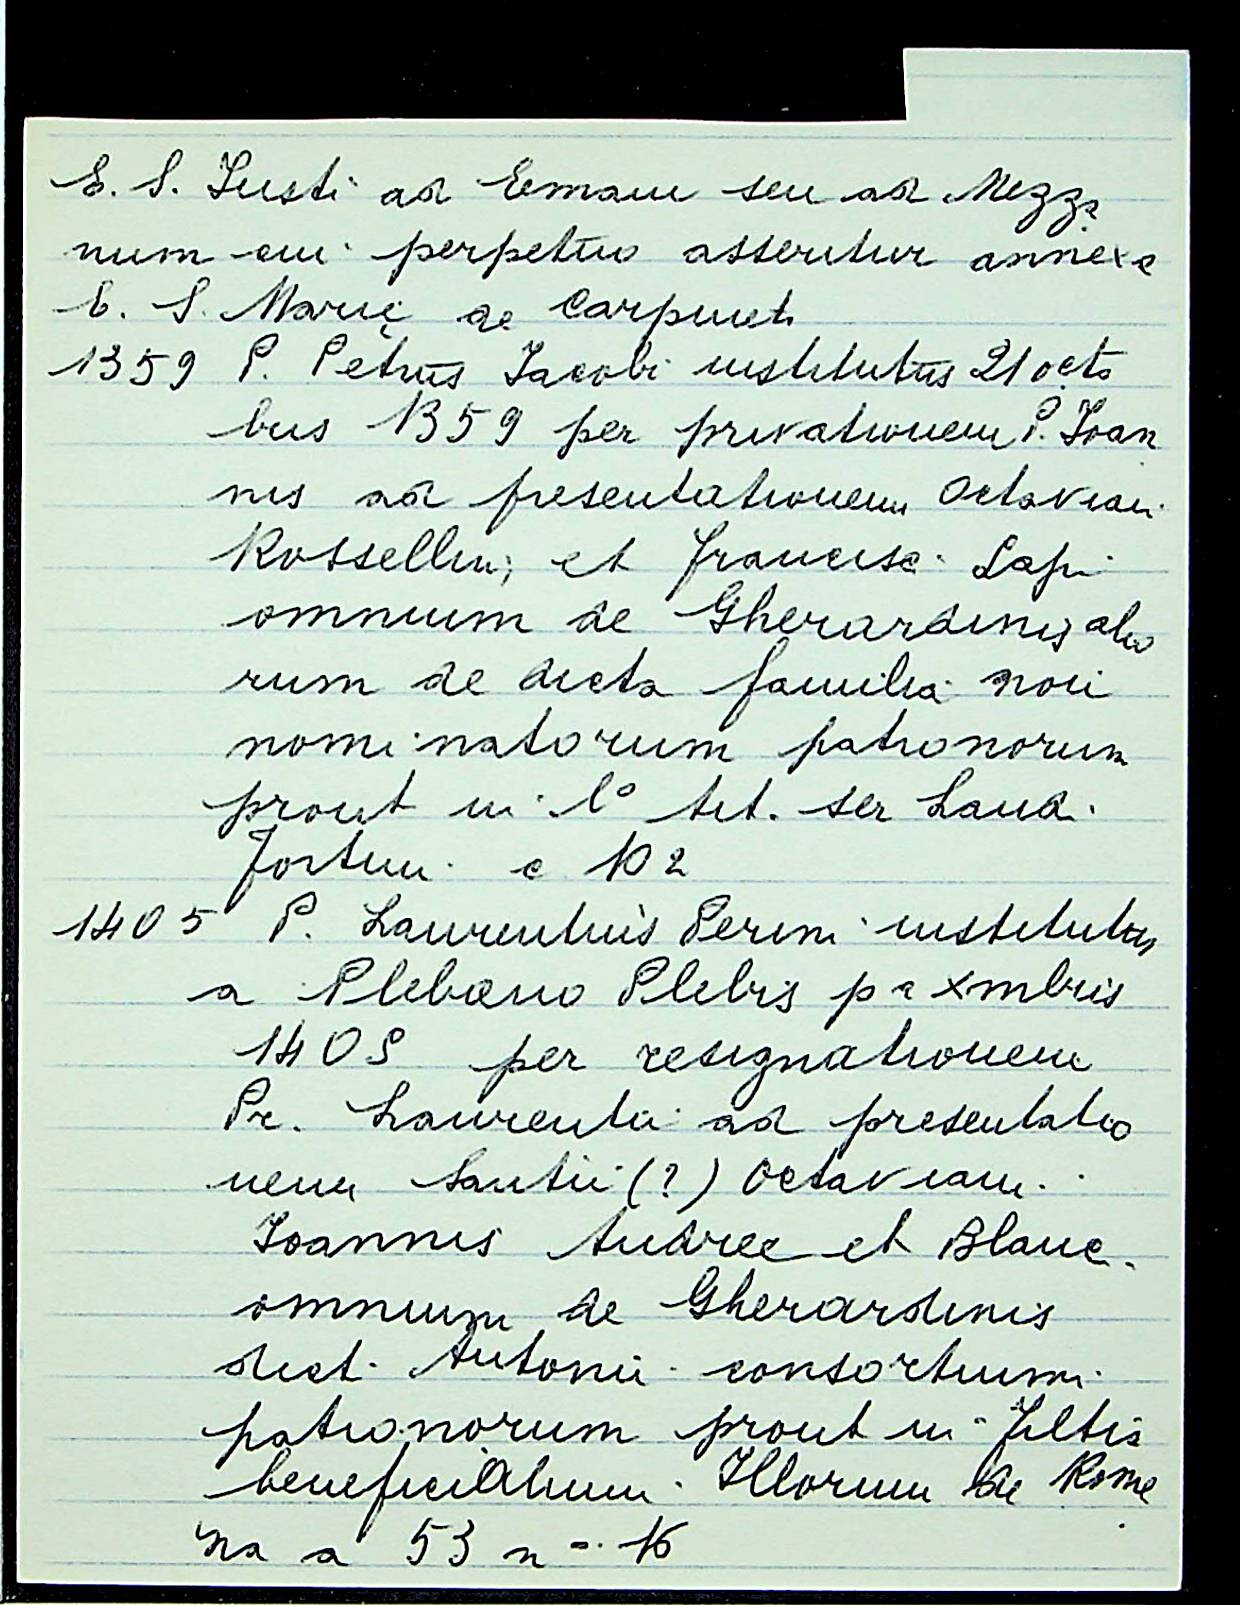 E. S. Iusti ad Emam seu ad Mezza
num cui perpetuo asseritur annexa
E. S. Marię de Carpineti
1359 P. Petrus Iacobi institutus 21 octo
bris 1359 per privationem P. Ioan
nis ad presentationem Octaviani
Rossellini et Francisci Lapi
omnium de Gherardinis alio
rum de dicta familia non
nominatorum patronorum
prout in l° tit. ser Land.
Fortini c 102
1405 P. Laurentius Perini institutus
a Plebano Plebis pa xmbris
1405 per resignationem
Pr. Laurentii ad presentatio
nem Santii (?) Octaviani
Ioannis Andree et Blanc.
omnium de Gherardinis
dict. Antonii consortium
patronorum prout in Filtia
beneficialium Illorum de Rome
na a 53 n = 16